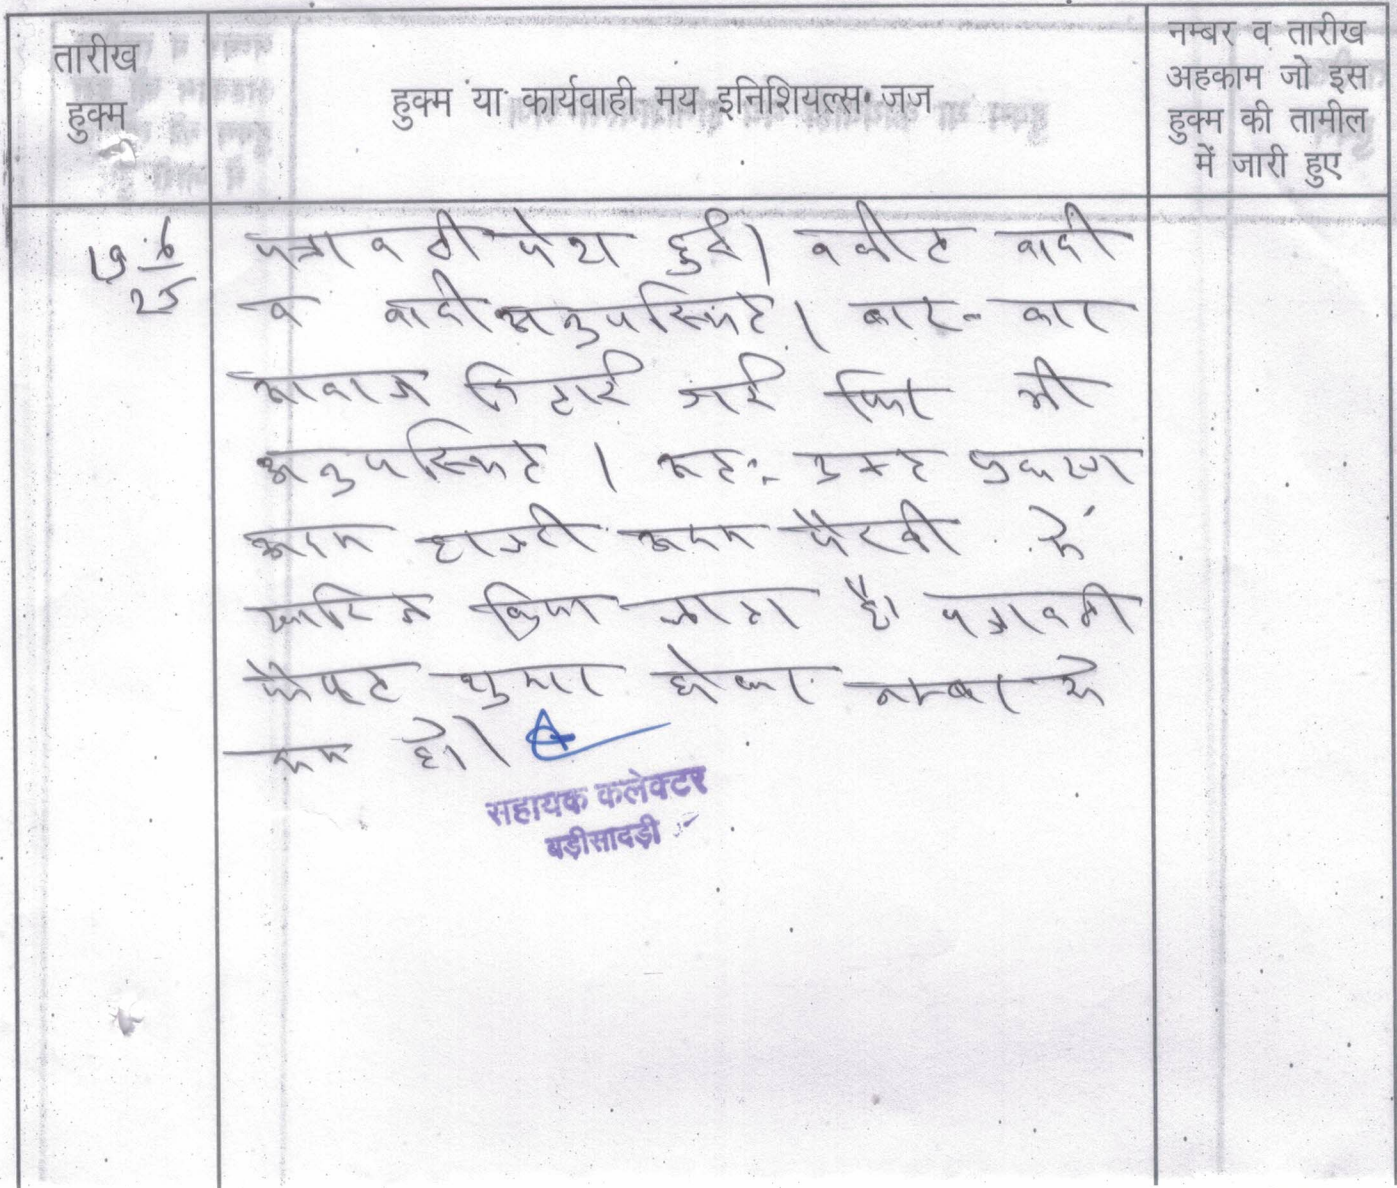 तारीख
हुक्म
हुक्म या कार्यवाही मय इनिशियल्स जज
नम्बर व तारीख
अहकाम जो इस
हुक्म की तामील
में जारी हुए
पत्रावली पेश हुई। वकील वादी
व वादी अनुपस्थित। बार-बार
आवाज दिलाई गई फिर भी
अनुपस्थित। अतः उक्त प्रकरण
अदम हाजरी अदम पैरवी में
खारिज किया जाता है। पत्रावली
फैसल शुमार होकर नम्बर से
कम हो।
सहायक कलेक्टर
बड़ीसादड़ी